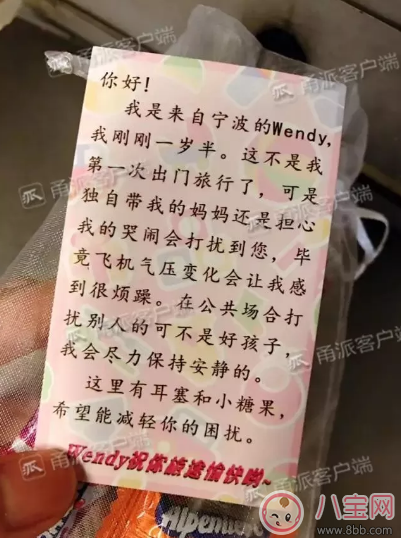 你好！
我是来自宁波的Wendy,
我刚刚一岁半。这不是我
第一次出门旅行了，可是
独自带我的妈妈还是担心
我的哭闹会打扰到您，毕
竟飞机气压变化会让我感
到很烦躁。在公共场合打
扰别人的可不是好孩子，
我会尽力保持安静的。
这里有耳塞和小糖果，
希望能减轻你的困扰。
Wendy祝你旅途愉快哟~
Alpenlie
甬派客户端
甬派客户端
甬派客户端
甬派客户端
甬派客户端
甬派客户端
八宝网
www.8bb.com